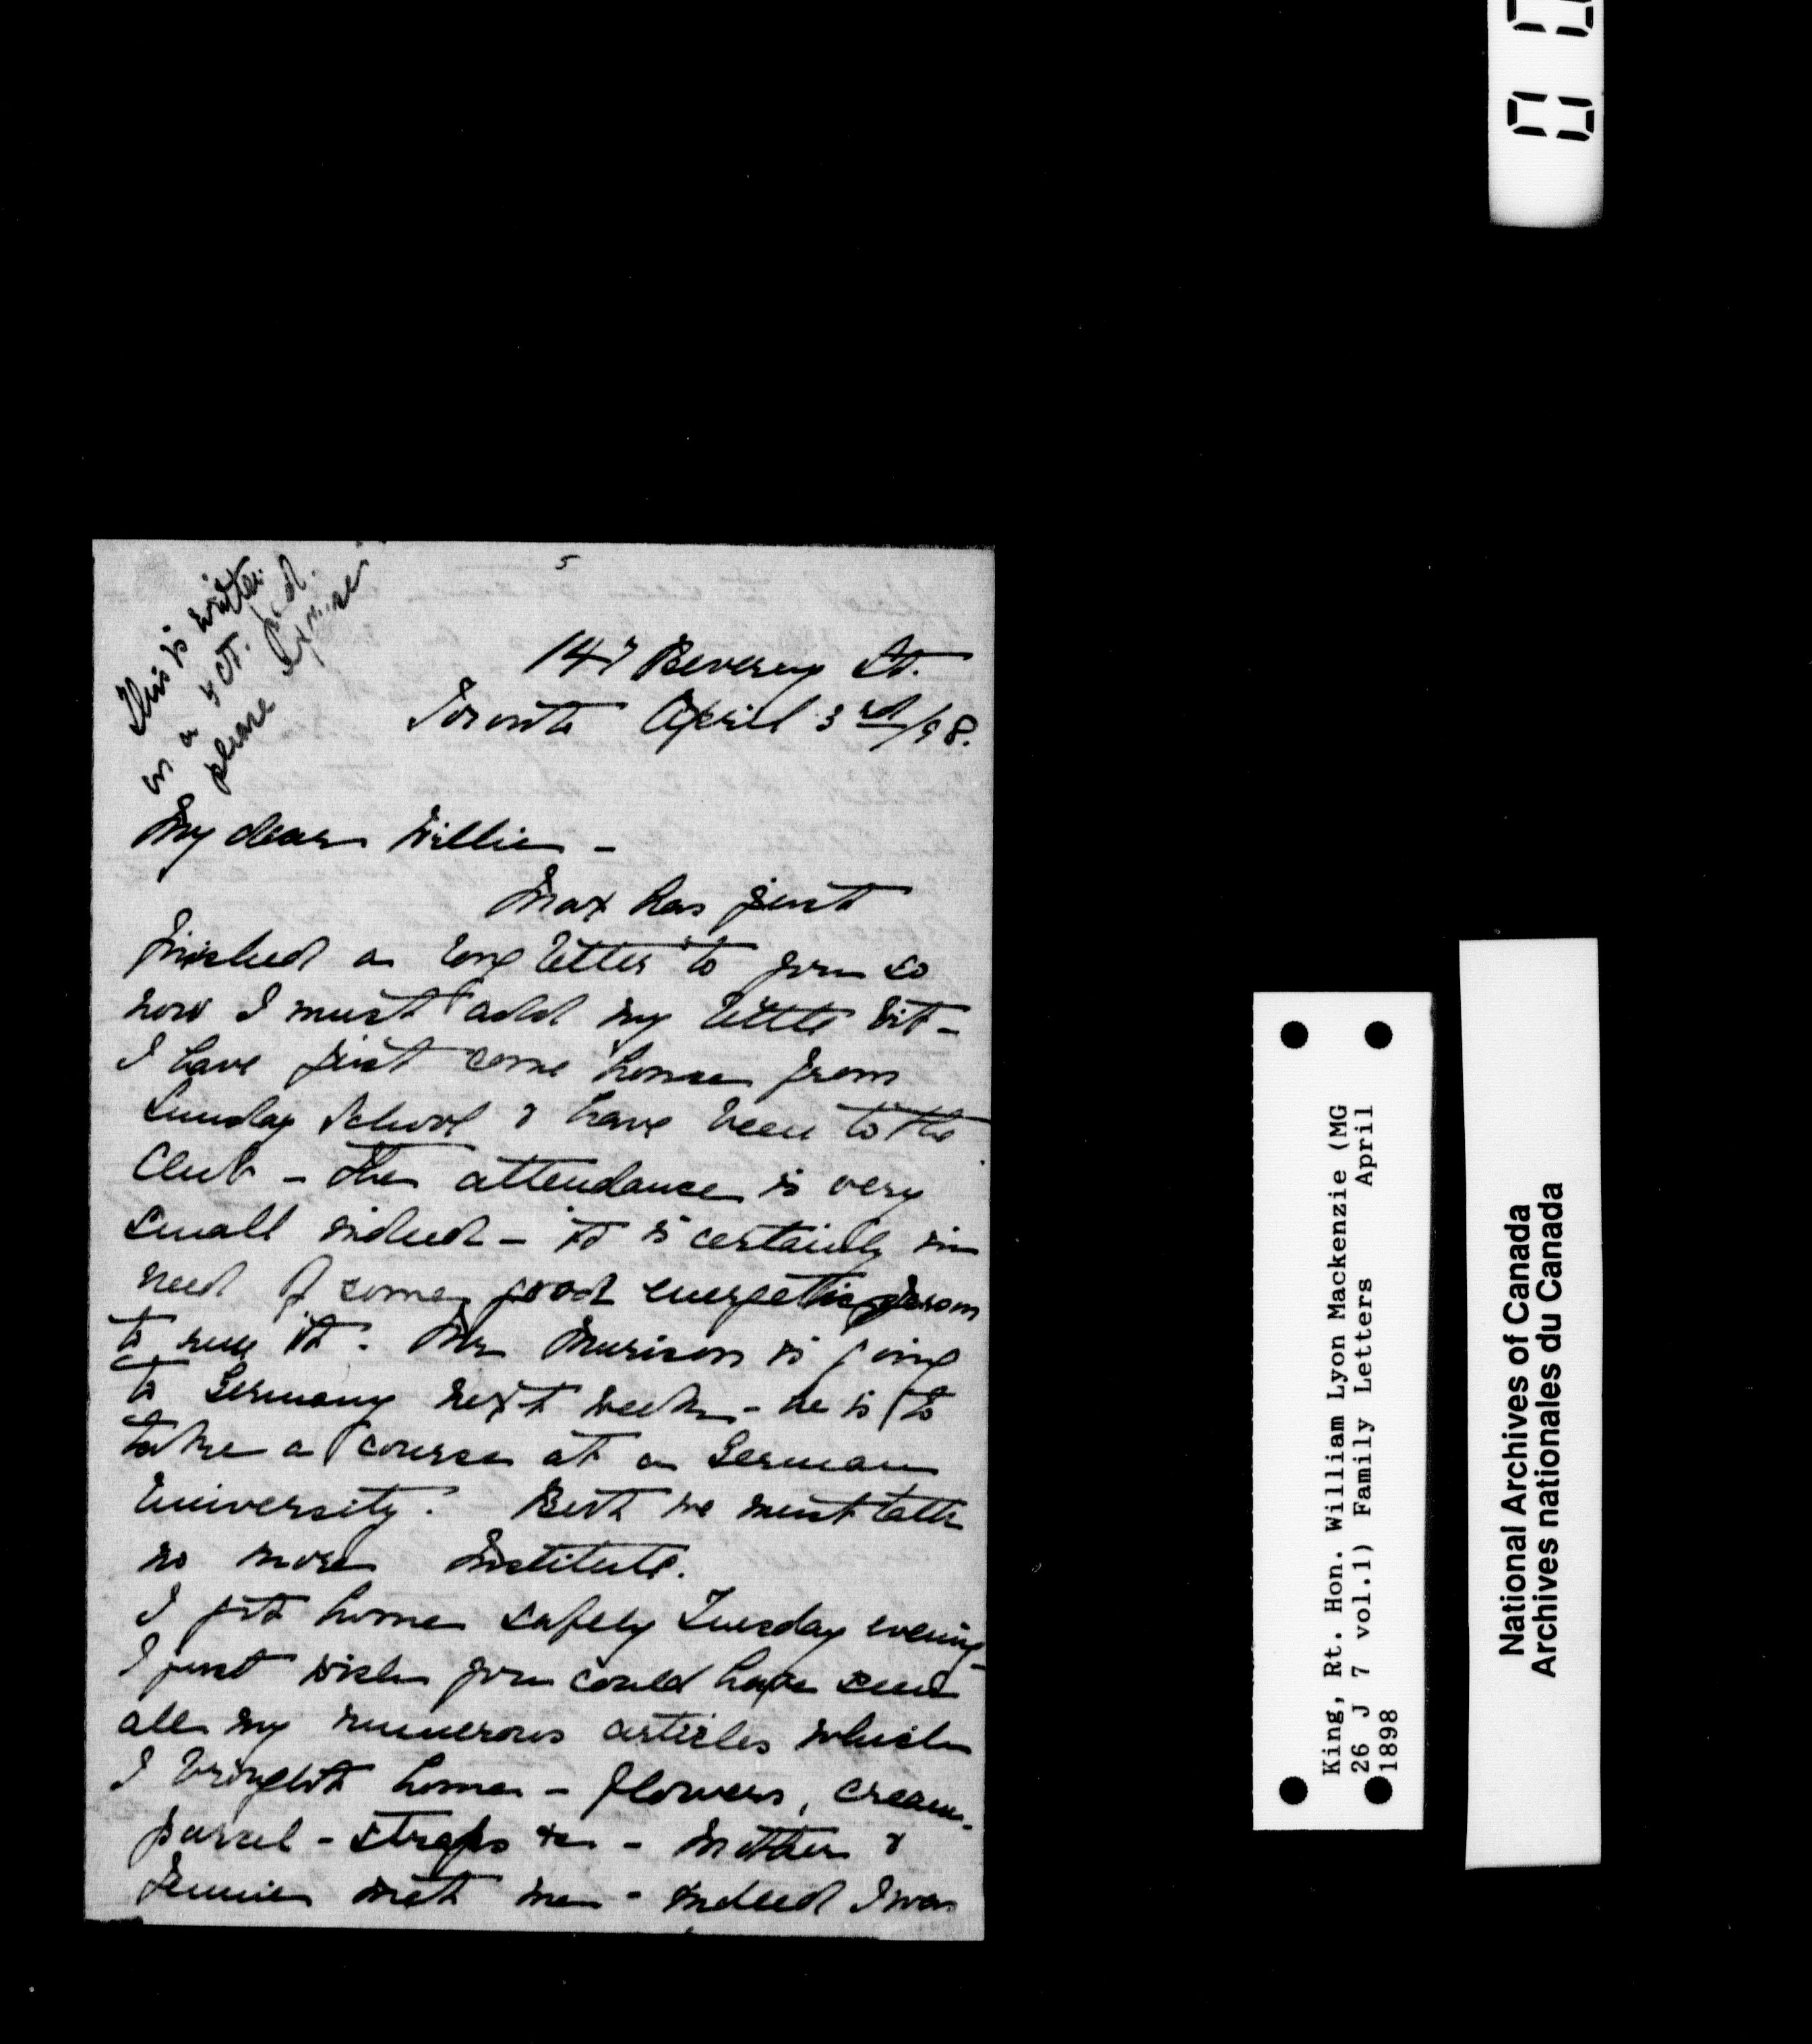 5
This is written
on a 5 ct. pad.
please excuse
147 Beverley St.
Toronto April 3rd/98.
My dear Willie -
Max has just
finished a long letter to you so
now I must add my little bit -
I have just come home from
Sunday School & have been to the
Club - The attendance is very
small indeed - it is certainly in
need of some good energetic person
to run it. Mr Murison is going
to Germany next week - he is to
take a course at a German
University. But we must talk
no more Institute.
I got home safely Tuesday evening -
I just wish you could have seen
all my numerous articles which
I brought home - flowers, cream,
parcel - straps &c - Mother &
Jennie met me - indeed I was
King, Rt. Hon. William Lyon Mackenzie (MG
26 J 7 vol.1) Family Letters April
1898
National Archives of Canada
Archives nationales du Canada